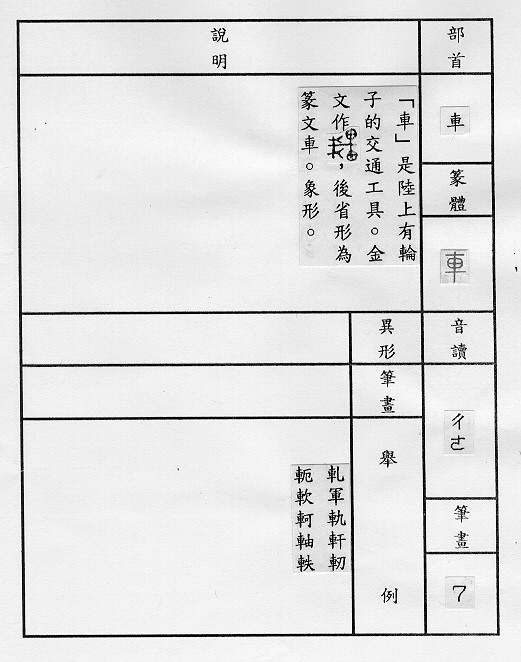 部首
車
篆體
車
音讀
ㄔㄜ
筆畫
7
說明
「車」是陸上有輪
子的交通工具。金
文作，後省形為
篆文車。象形。
異形
筆畫
舉例
軋軍軌軒軔
軛軟軻軸軼